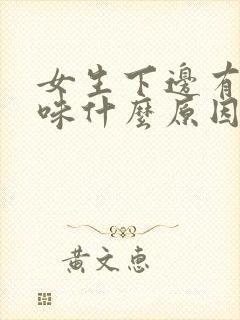 女生下邊有
味什麼原因
黃文惠